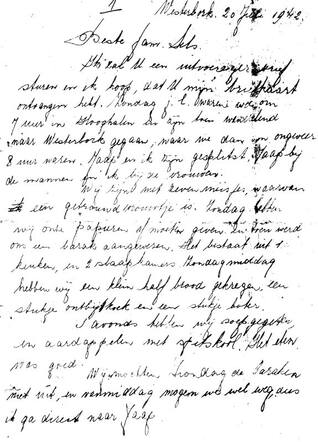 1
Westerbork. 20 Juli 1942.
Beste Fam. Sels.
Ik zal U een uitvoeriger brief
sturen en ik hoop, dat U mijn briefkaart
ontvangen hebt. Zondag j.l. waren we om
7 uur in Hooghalen en zijn toen
naar Westerbork gegaan, waar we dan om ongeveer
8 uur waren. Jaap en ik zijn gesplitst. Jaap bij
de mannen en ik bij de vrouwen.
Wij zijn met zeven meisjes, waarvan
een getrouwd vrouwtje is. Zondag
wij onze papieren af moeten geven. En toen werd
om een barak aangewezen. Het bestaat uit 1
keuken, en 2 slaapkamers. Zondagmiddag
hebben wij een klein half brood gekregen, een
stukje ontbijtkoek en een stukje boter.
's Avonds hebben wij soep gegeten
en aardappelen met spitskool. Het eten
was goed.
Wij mochten Zondag de barakken
niet uit, en vanmiddag mogen we wel weg, dus
ik ga direct naar Jaap.